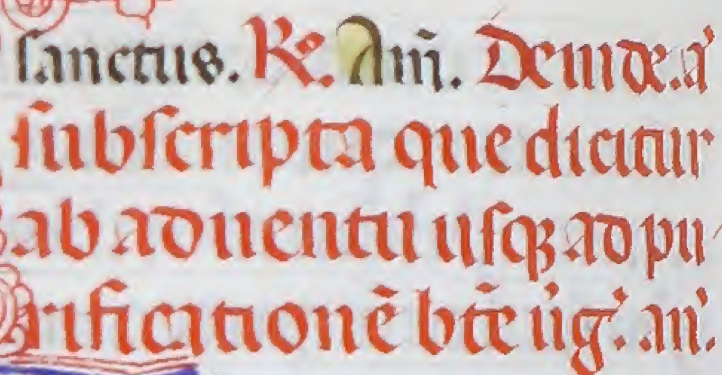 sanctus. R̃. Am̃. Deinde. a'
subscripta que dicitur
ab aduentu usqꝫ ad pu
rificationē bt̃e uig'. an'.